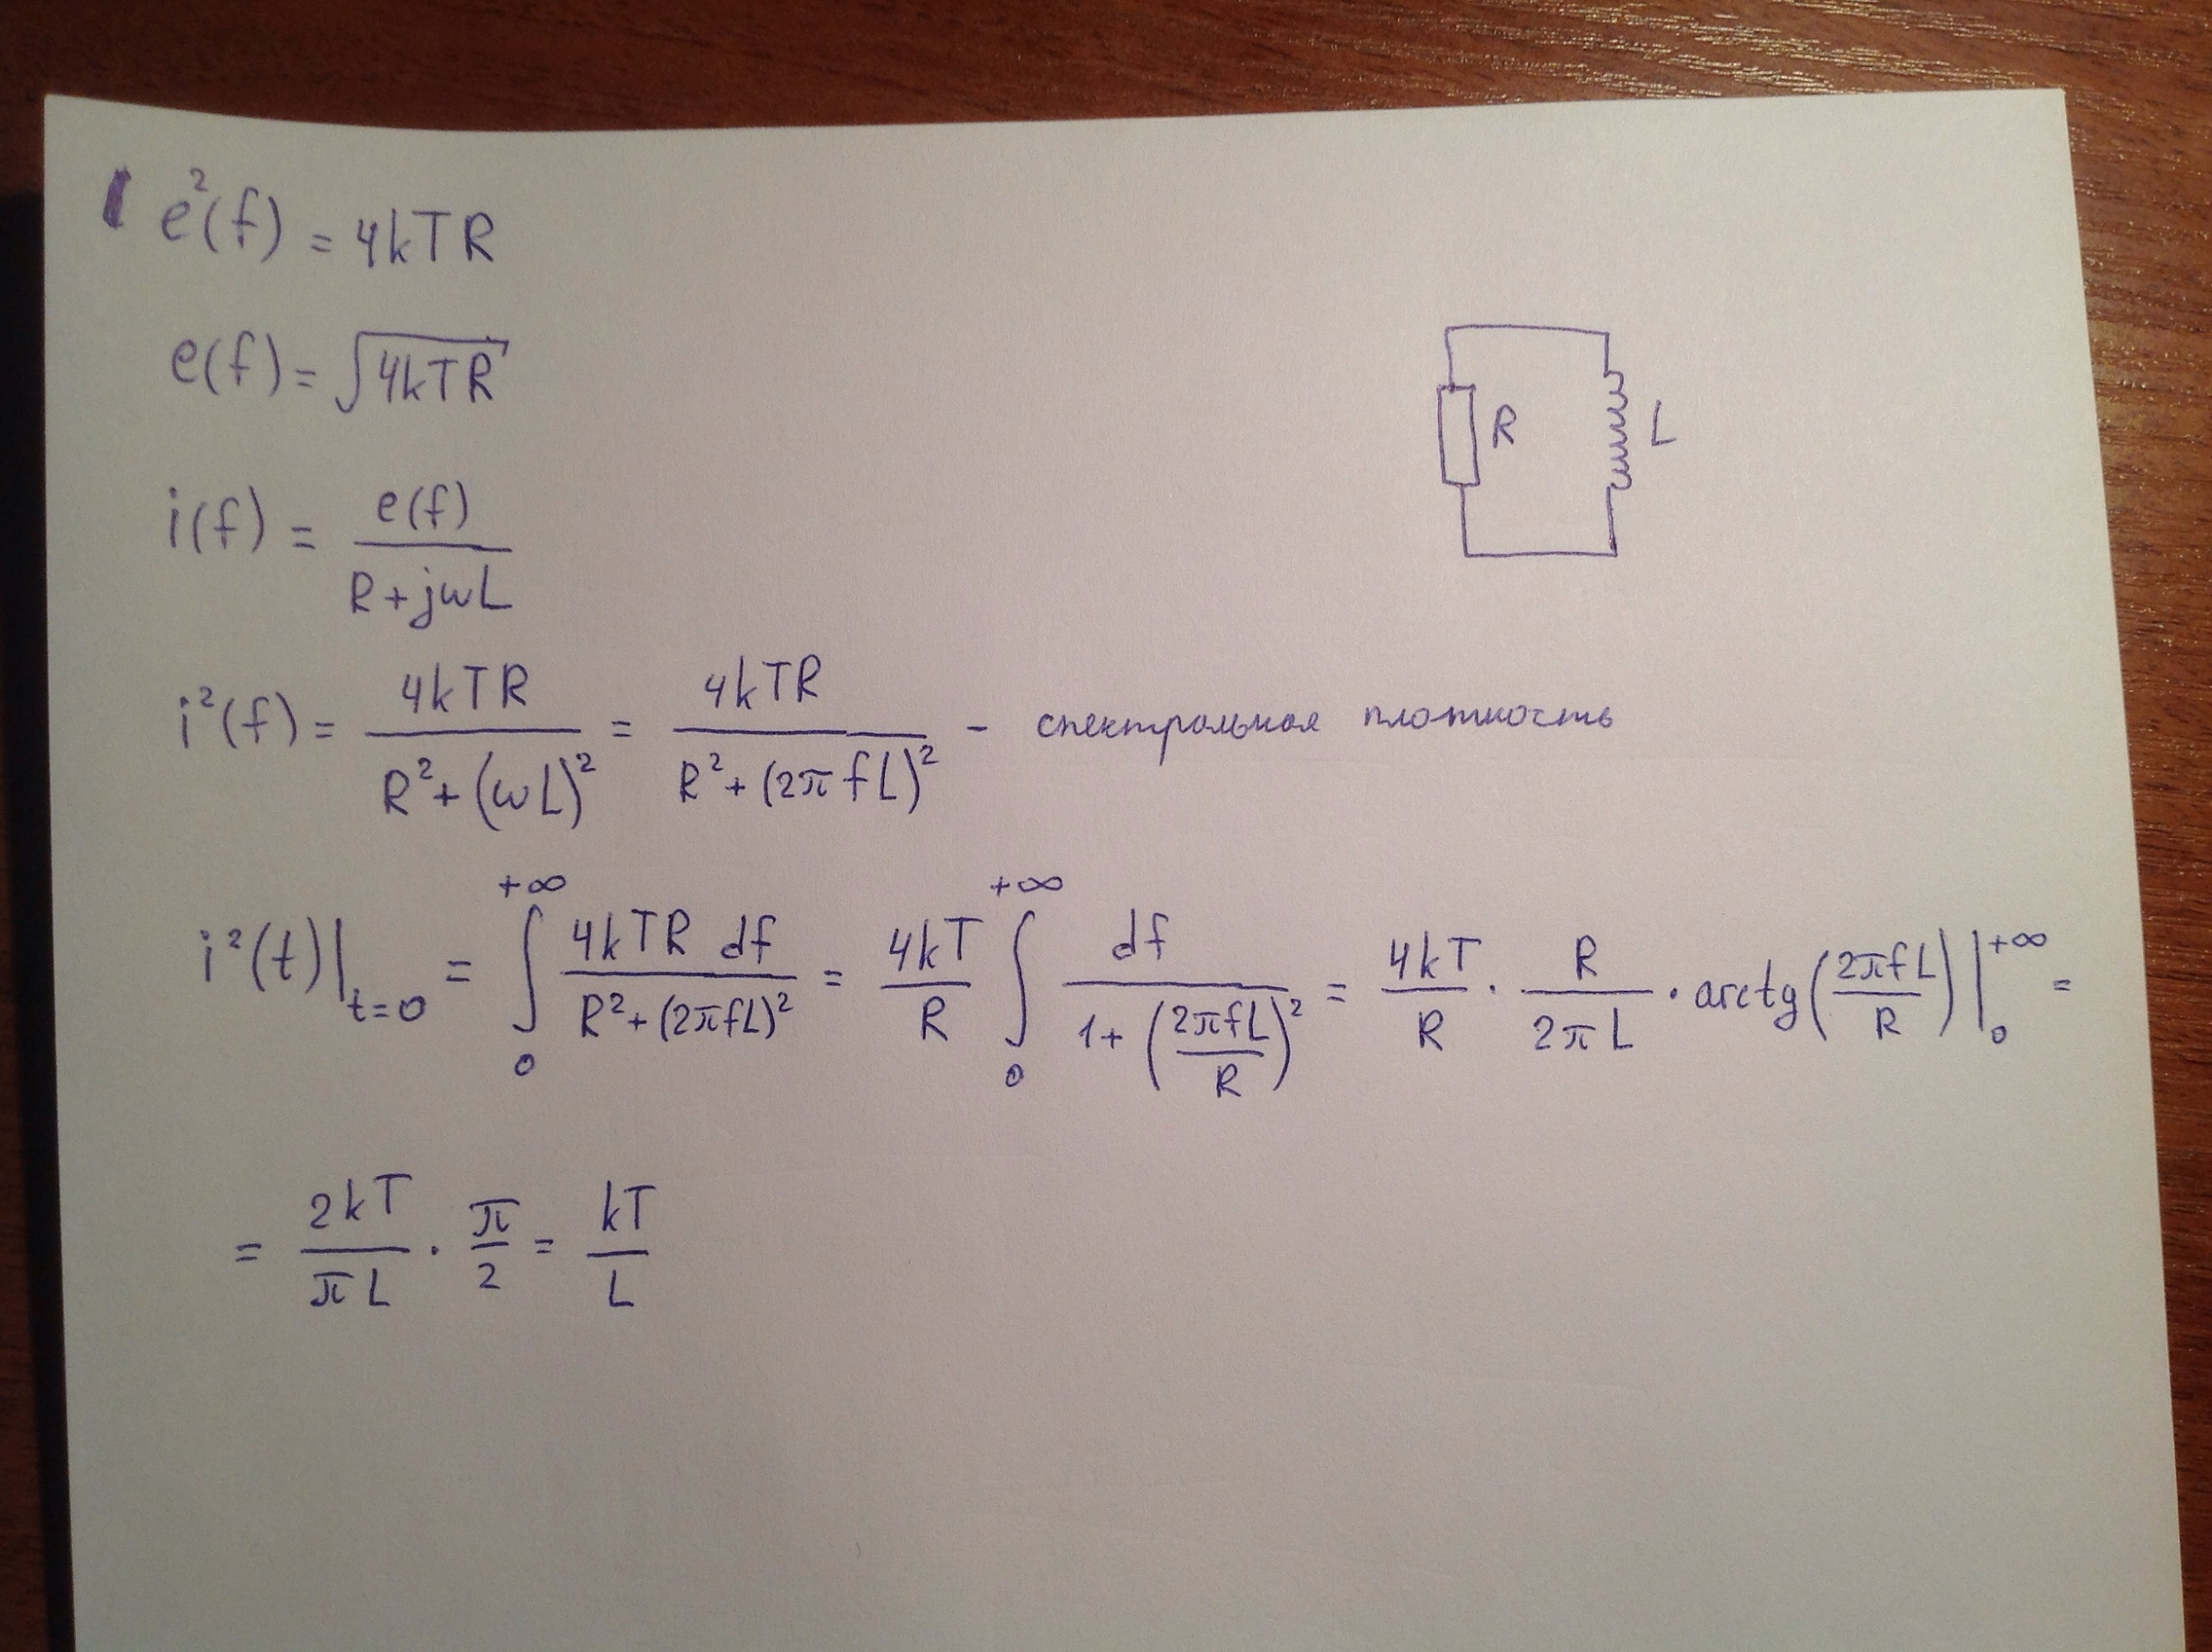 e²(f) = 4kTR
e(f) = √4kTR
R L
i(f) = e(f) / (R + jωL)
i²(f) = 4kTR / (R² + (ωL)²) = 4kTR / (R² + (2πfL)²) - спектральная плотность
i²(t)|t=0 = ∫₀^+∞ 4kTR df / (R² + (2πfL)²) = 4kT/R ∫₀^+∞ df / (1 + (2πfL/R)²) = 4kT/R · R/2πL · arctg(2πfL/R)|₀^+∞ =
= 2kT/πL · π/2 = kT/L